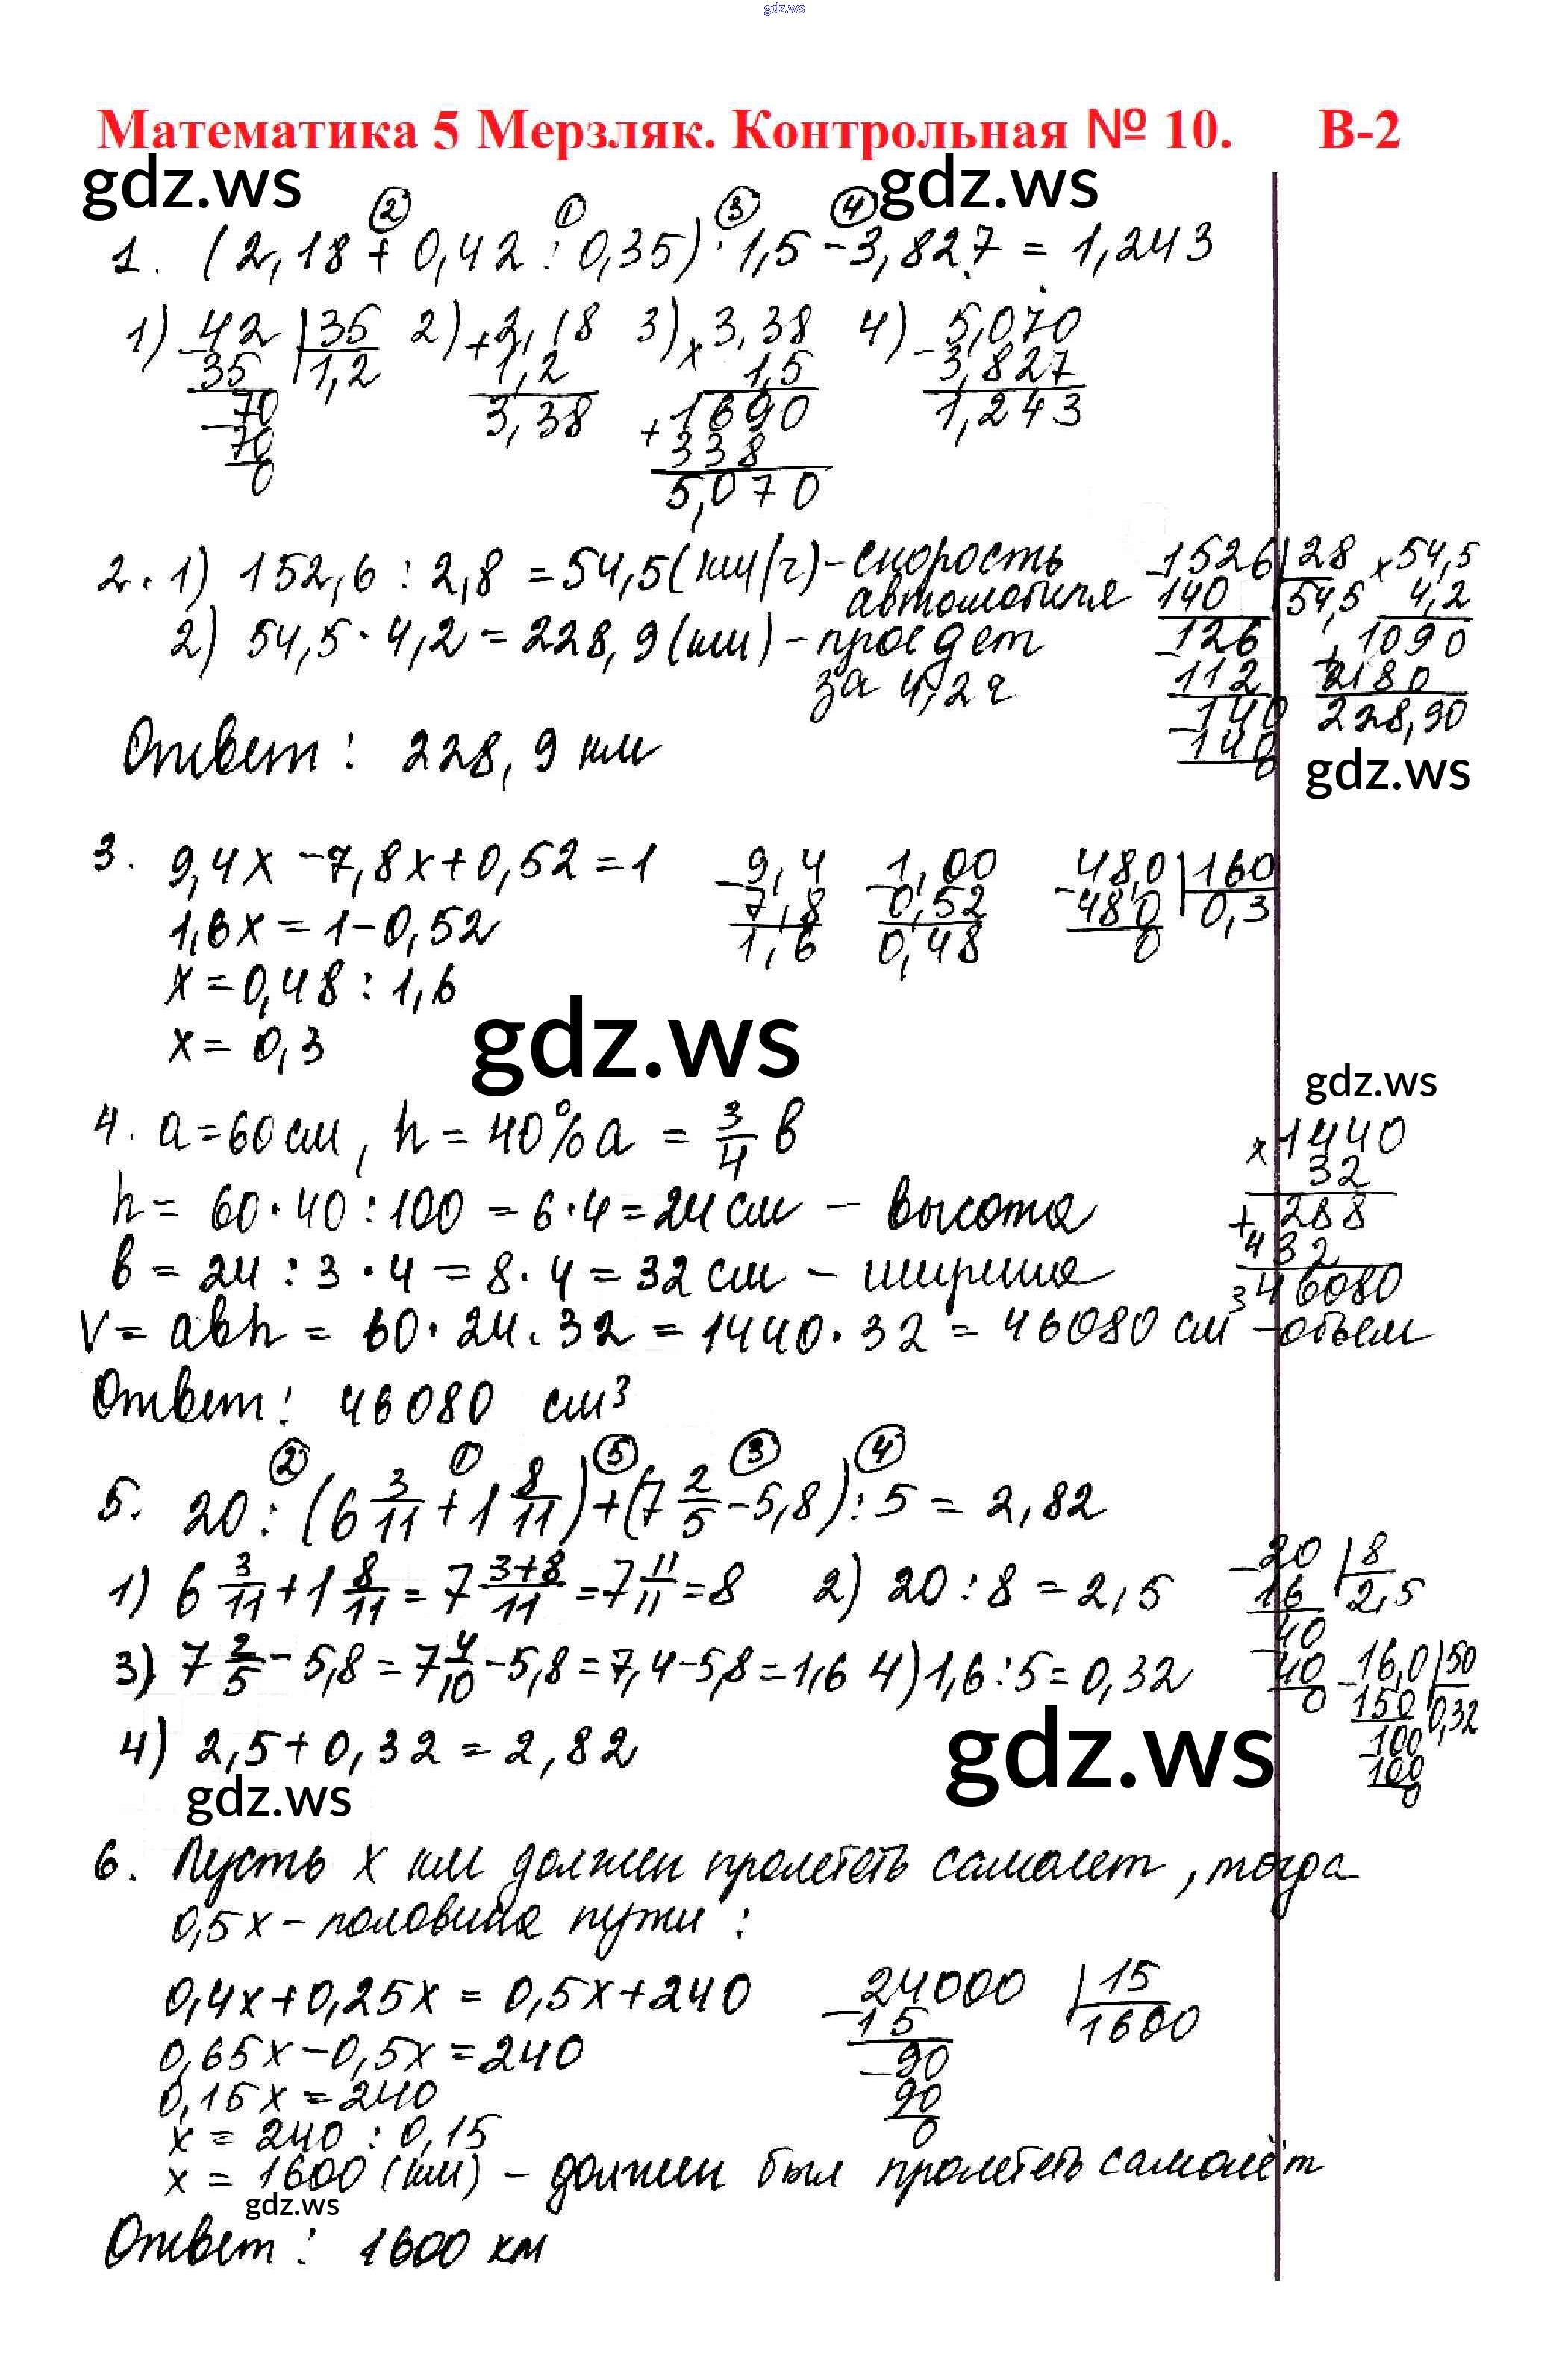 gdz.ws
Математика 5 Мерзляк. Контрольная № 10. В-2
gdz.ws gdz.ws
② ① ③ ④
1. (2,18 + 0,42 : 0,35) · 1,5 - 3,827 = 1,243
1) 42 | 35 2) + 2,18 3) x 3,38 4) - 5,070
- 35 | 1,2 1,2 1,5 3,827
70 3,38 + 1690 1,243
- 70 338
0 5,070
2. 1) 152,6 : 2,8 = 54,5 (км/ч) - скорость автомобиля
2) 54,5 · 4,2 = 228,9 (км) - проедет за 4,2 ч
Ответ: 228,9 км
- 1526 | 28 x 54,5
140 | 54,5 4,2
- 126 + 1090
112 2180
- 140 228,90
140
0
gdz.ws
3. 9,4x - 7,8x + 0,52 = 1
1,6x = 1 - 0,52
x = 0,48 : 1,6
x = 0,3
- 9,4 - 1,00 - 48,0 | 160
7,8 0,52 48 0 | 0,3
1,6 0,48 0
gdz.ws
gdz.ws
4. a = 60 см, h = 40% a = 3/4 в
h = 60 · 40 : 100 = 6 · 4 = 24 см - высота
в = 24 : 3 · 4 = 8 · 4 = 32 см - ширина
V = авh = 60 · 24 · 32 = 1440 · 32 = 46080 см³ - объем
Ответ: 46080 см³
x 1440
32
+ 288
432
46080
② ① ⑤ ③ ④
5. 20 : (6 3/11 + 1 8/11) + (7 2/5 - 5,8) : 5 = 2,82
1) 6 3/11 + 1 8/11 = 7 3+8/11 = 7 11/11 = 8 2) 20 : 8 = 2,5
3) 7 2/5 - 5,8 = 7 4/10 - 5,8 = 7,4 - 5,8 = 1,6 4) 1,6 : 5 = 0,32
4) 2,5 + 0,32 = 2,82
- 20 | 8
16 | 2,5
- 40
40
0
- 16,0 | 50
150 | 0,32
- 100
100
0
gdz.ws
gdz.ws
6. Пусть x км должен пролететь самолет, тогда
0,5x - половина пути :
0,4x + 0,25x = 0,5x + 240
0,65x - 0,5x = 240
0,15x = 240
x = 240 : 0,15
x = 1600 (км) - должен был пролететь самолёт
- 24000 | 15
15 | 1600
- 90
90
0
gdz.ws
Ответ: 1600 км